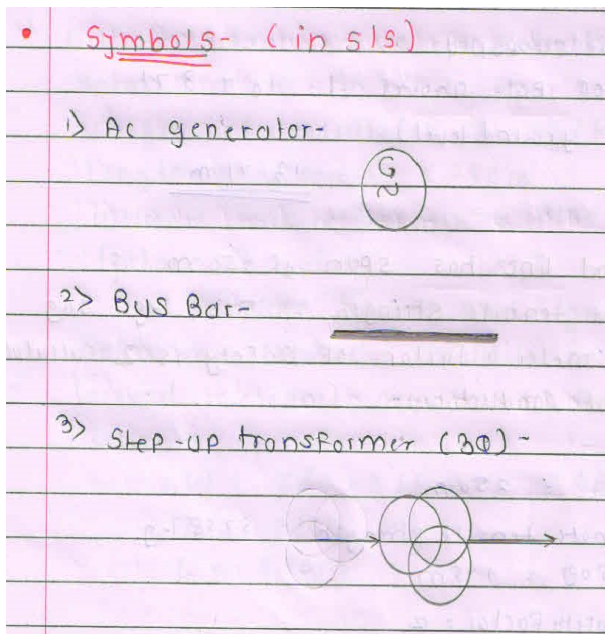 • Symbols- (in S/S)
1> Ac generator-
G
~
2> Bus Bar-
3> Step-up transformer (3Φ)-